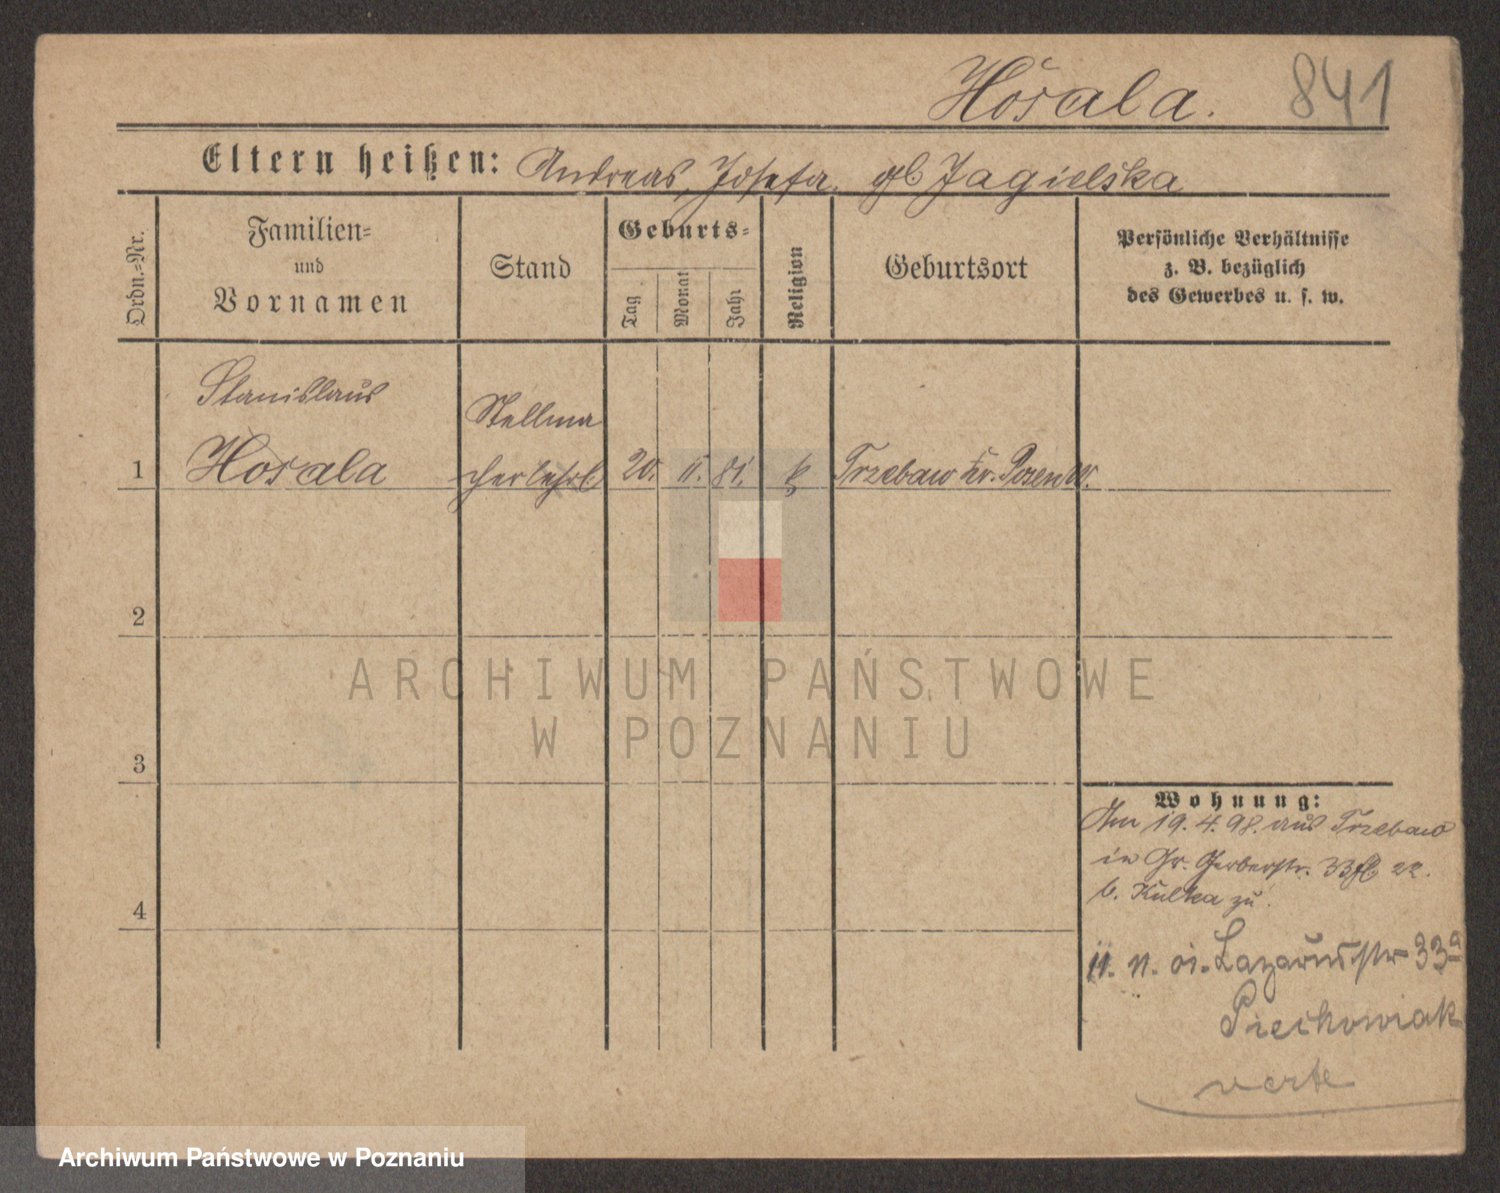 Hosala. 841
Eltern heißen: Andreas, Josefa. gb. Jagielska
Ordn.-Nr.
Familien-
und
Vornamen
Stand
Geburts-
Tag
Monat
Jahr
Religion
Geburtsort
Persönliche Verhältnisse
z. B. bezüglich
des Gewerbes u. s. w.
Stanislaus
Stellma
1 Hosala cherlehrl. 20. 11. 81. k Trzebaw Kr. Posen W.
2
ARCHIWUM PAŃSTWOWE
W POZNANIU
3
Wohnung:
Am 19.4.98. aus Trzebaw
in Gr. Gerberstr. 33 22.
b. Kulka zu.
4
Lazarusstr 33a
Piechowiak
verte
Archiwum Państwowe w Poznaniu